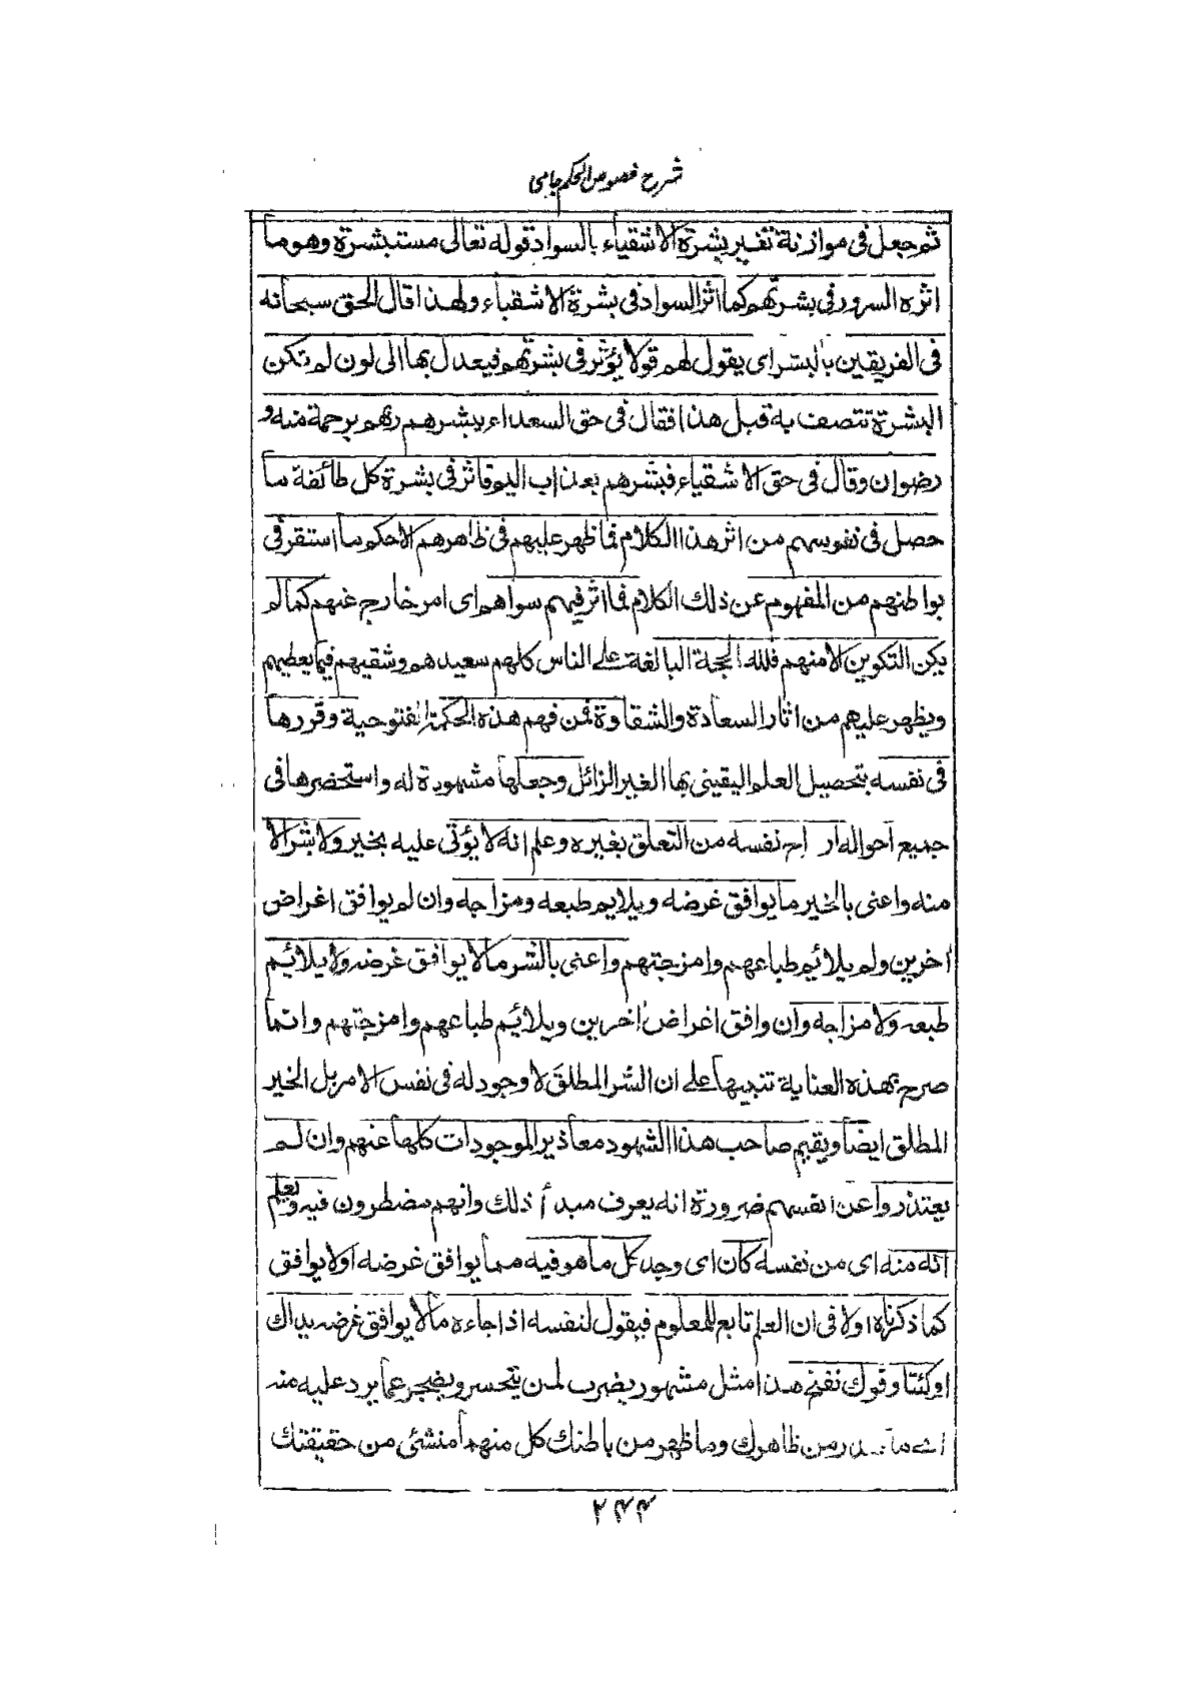 شرح فصوص الحکم جامی
ثم جعل فی موازنة تغییر بشرة الاشقیاء بالسواد قوله تعالی مستبشرة وهو ما
اثره السرور فی بشرتهم کما اثر السواد فی بشرة الاشقیاء ولهذا قال الحق سبحانه
فی الفریقین بالبشرای یقول لهم قولا یؤثر فی بشرتهم فیعدل بها الی لون لم تکن
البشرة تتصف به قبل هذا فقال فی حق السعداء یبشرهم ربهم برحمة منه و
رضوان وقال فی حق الاشقیاء فبشرهم بعذاب الیم فاثر فی بشرة کل طائفة ما
حصل فی نفوسهم من اثر هذا الکلام فما ظهر علیهم فی ظاهرهم الا حکم ما استقر فی
بواطنهم من المفهوم عن ذلك الکلام فما اثر فیهم سواهم ای امر خارج عنهم کما لم
یکن التکوین الا منهم فلله الحجة البالغة علی الناس کلهم سعیدهم وشقیهم فیما یعطیهم
ویظهر علیهم من اثار السعادة والشقاوة فمن فهم هذه الحکمة الفتوحیة وقررها
فی نفسه بتحصیل العلم الیقینی بها الغیر الزائل وجعلها مشهودة له واستحضرها فی
جمیع احواله اراح نفسه من التعلق بغیره وعلم انه لا یؤتی علیه بخیر ولا بشر الا
منه واعنی بالخیر ما یوافق غرضه ویلایم طبعه ومزاجه وان لم یوافق اغراض
اخرین ولم یلائم طباعهم وامزجتهم واعنی بالشر ما لا یوافق غرضه ولا یلائم
طبعه ولا مزاجه وان وافق اغراض اخرین ویلائم طباعهم وامزجتهم وانما
صرح بهذه العنایة تنبیها علی ان الشر المطلق لا وجود له فی نفس الامر بل الخیر
المطلق ایضا ویقیم صاحب هذا الشهود معاذیر الموجودات کلها عنهم وان لم
یعتذروا عن انفسهم ضرورة انه یعرف مبدأ ذلك وانهم مضطرون فیه ویعلم
انه منه ای من نفسه کان ای وجد کل ما هو فیه مما یوافق غرضه او لا یوافق
کما ذکرناه اولا فی ان العلم تابع للمعلوم فیقول لنفسه اذا جاءه ما لا یوافق غرضه یداك
اوکتا وفوك نفخ هذا مثل مشهور یضرب لمن یتحسر ویضجر عما یرد علیه منه
من ظاهرك وما ظهر من باطنك کل منهما منشئ من حقیقتك
۲۴۴